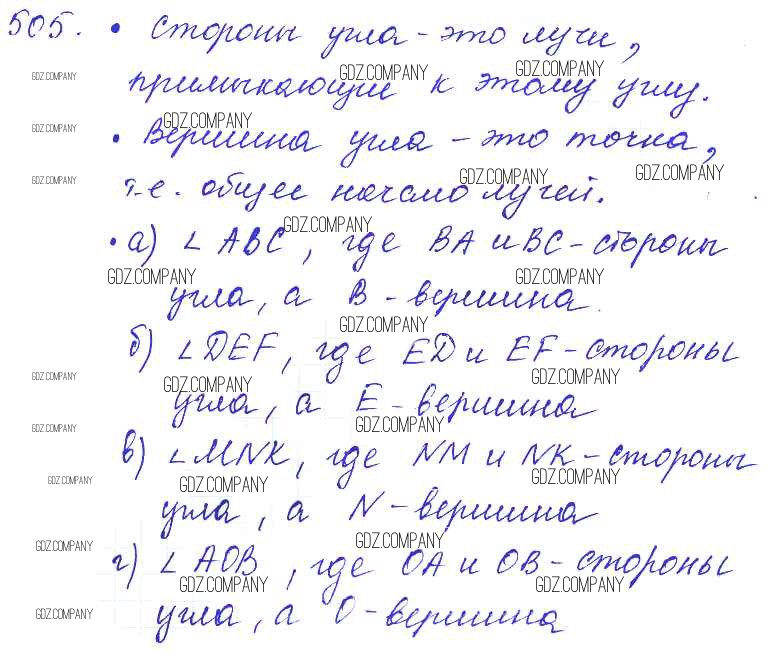 505. • Стороны угла - это лучи,
GDZ.COMPANY GDZ.COMPANY GDZ.COMPANY
примыкающие к этому углу.
GDZ.COMPANY GDZ.COMPANY
• Вершина угла - это точка,
GDZ.COMPANY GDZ.COMPANY GDZ.COMPANY
т.е. общее начало лучей.
GDZ.COMPANY
• а) ∠ ABC, где BA и BC - стороны
GDZ.COMPANY GDZ.COMPANY
угла, а B - вершина
GDZ.COMPANY
б) ∠ DEF, где ED и EF - стороны
GDZ.COMPANY GDZ.COMPANY GDZ.COMPANY
угла, а E - вершина
GDZ.COMPANY GDZ.COMPANY
в) ∠ MNK, где NM и NK - стороны
GDZ.COMPANY GDZ.COMPANY GDZ.COMPANY
угла, а N - вершина
GDZ.COMPANY GDZ.COMPANY
г) ∠ AOB, где OA и OB - стороны
GDZ.COMPANY GDZ.COMPANY
GDZ.COMPANY
угла, а O - вершина